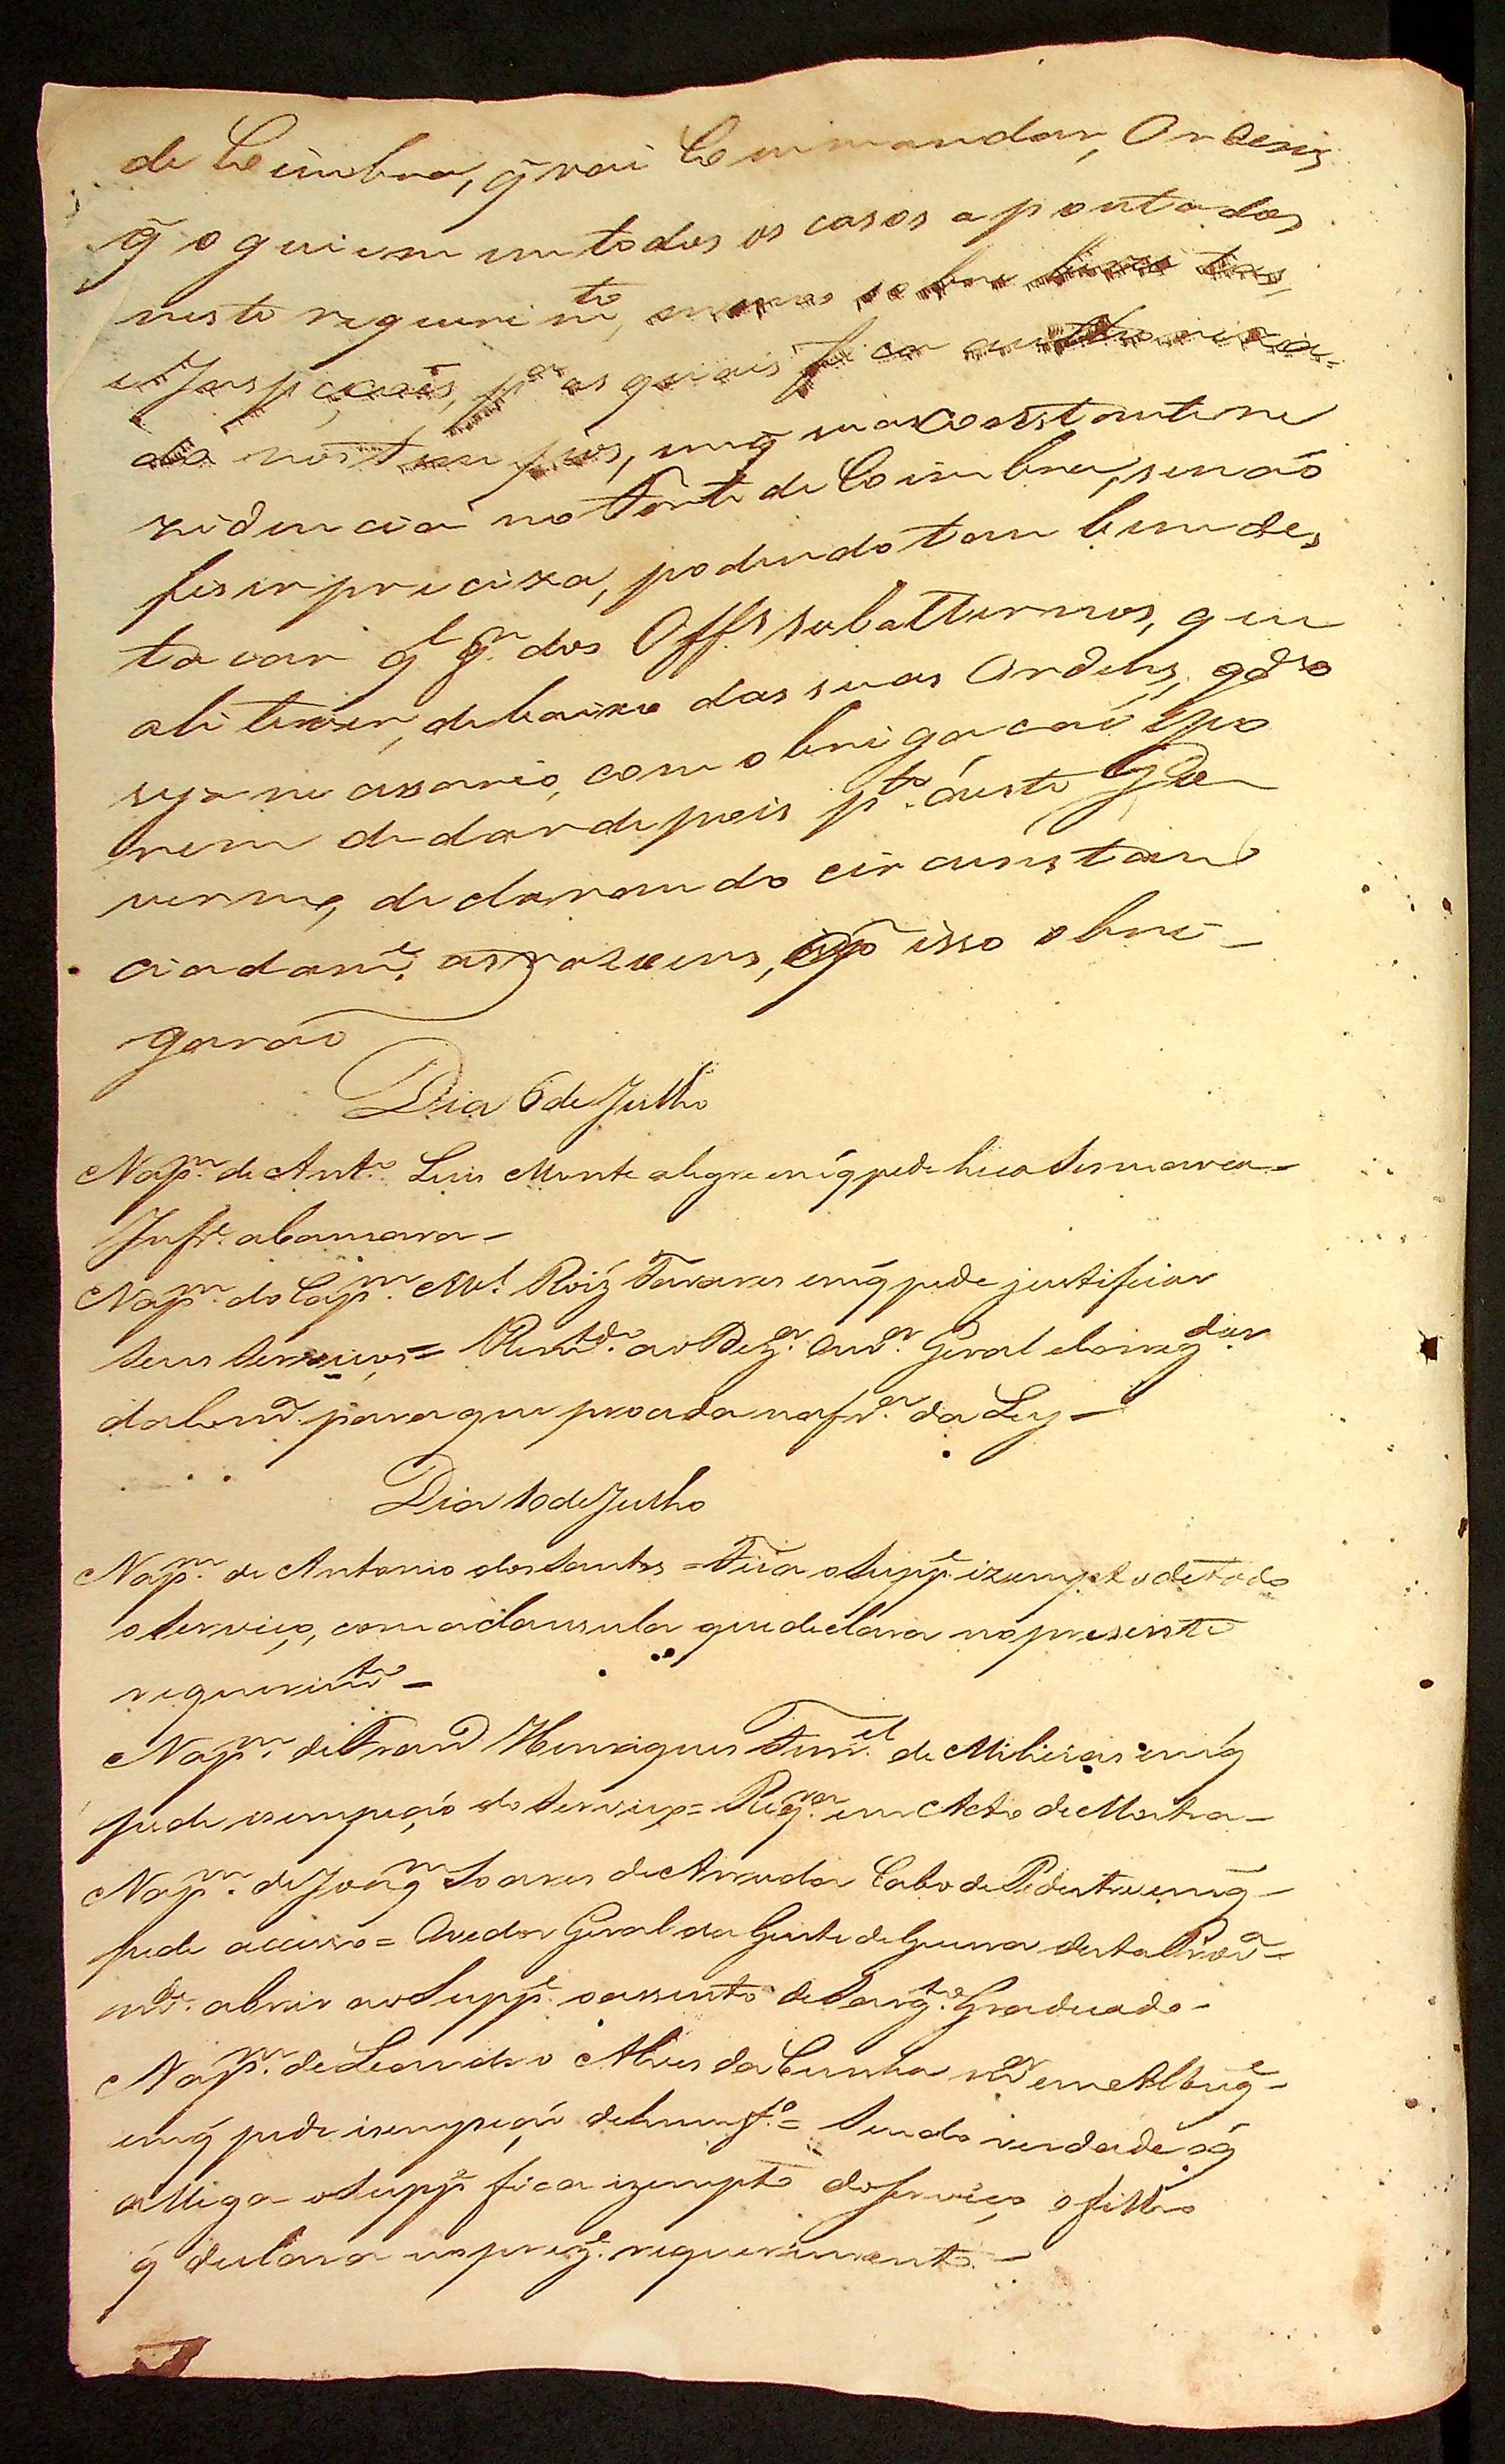 de Coimbra, q̃ vai Commandar, Ordens
q̃ o guiem em todos os casos apontados
neste requerimto, menos sobre
Inspeçaõs, pa as quais fica authoriza-
do nos tempos, em q̃ sua constante re
zidencia no Forte de Coimbra, se naõ
fiser precisa, podendo tambem des
tacar ql qr dos Offs subalternos, que
ali tiver, debaixo das suas Ordens, qdo
seja necessario, com obrigaçaõ po
rem de dar depois pte á este Go
verno, declarando circunstan
ciadame. as razoens, q̃ a isso obri-
garaõ
Dia 6 de Julho
Na pm. de Anto. Luis Monte alegre em q̃ pede hua Sismaria-
Infe. a Camara-
Na pm. do Capm. Mel. Roiz Tavares em q̃ pede justificar
seus serviços = Remdo. ao Dezor. Ouvor. Geral e Corregdor.
da Comca. para que proceda na fra. da Ley-
Dia 10 de Julho
Na pm. de Antonio dos Santos = Fica o Suppe izempto de todo
o serviço, com a clausula que declara no presente
requerimto-
Na pm. de Franco Henriques Furrel. de Milicias em q̃
pede isempçaõ do serviço = Reqra. em Acto de Mostra-
Na pm. de Joaqm Soares de Arruda Cabo de Pedestre em q̃
pede accesso = O Vedor Geral da Gente de Guerra desta Prova
mde. abrir ao Suppe. o assento de Sargto. Graduado-
Na pm. de Leandro Alves da Cunha mor em Albuqe-
em q̃ pede isempçaõ de hum fo. = Sendo verdade o q̃
allega o Suppe fica izempto do serviço o filho
q̃ declara no preze. requerimento.-